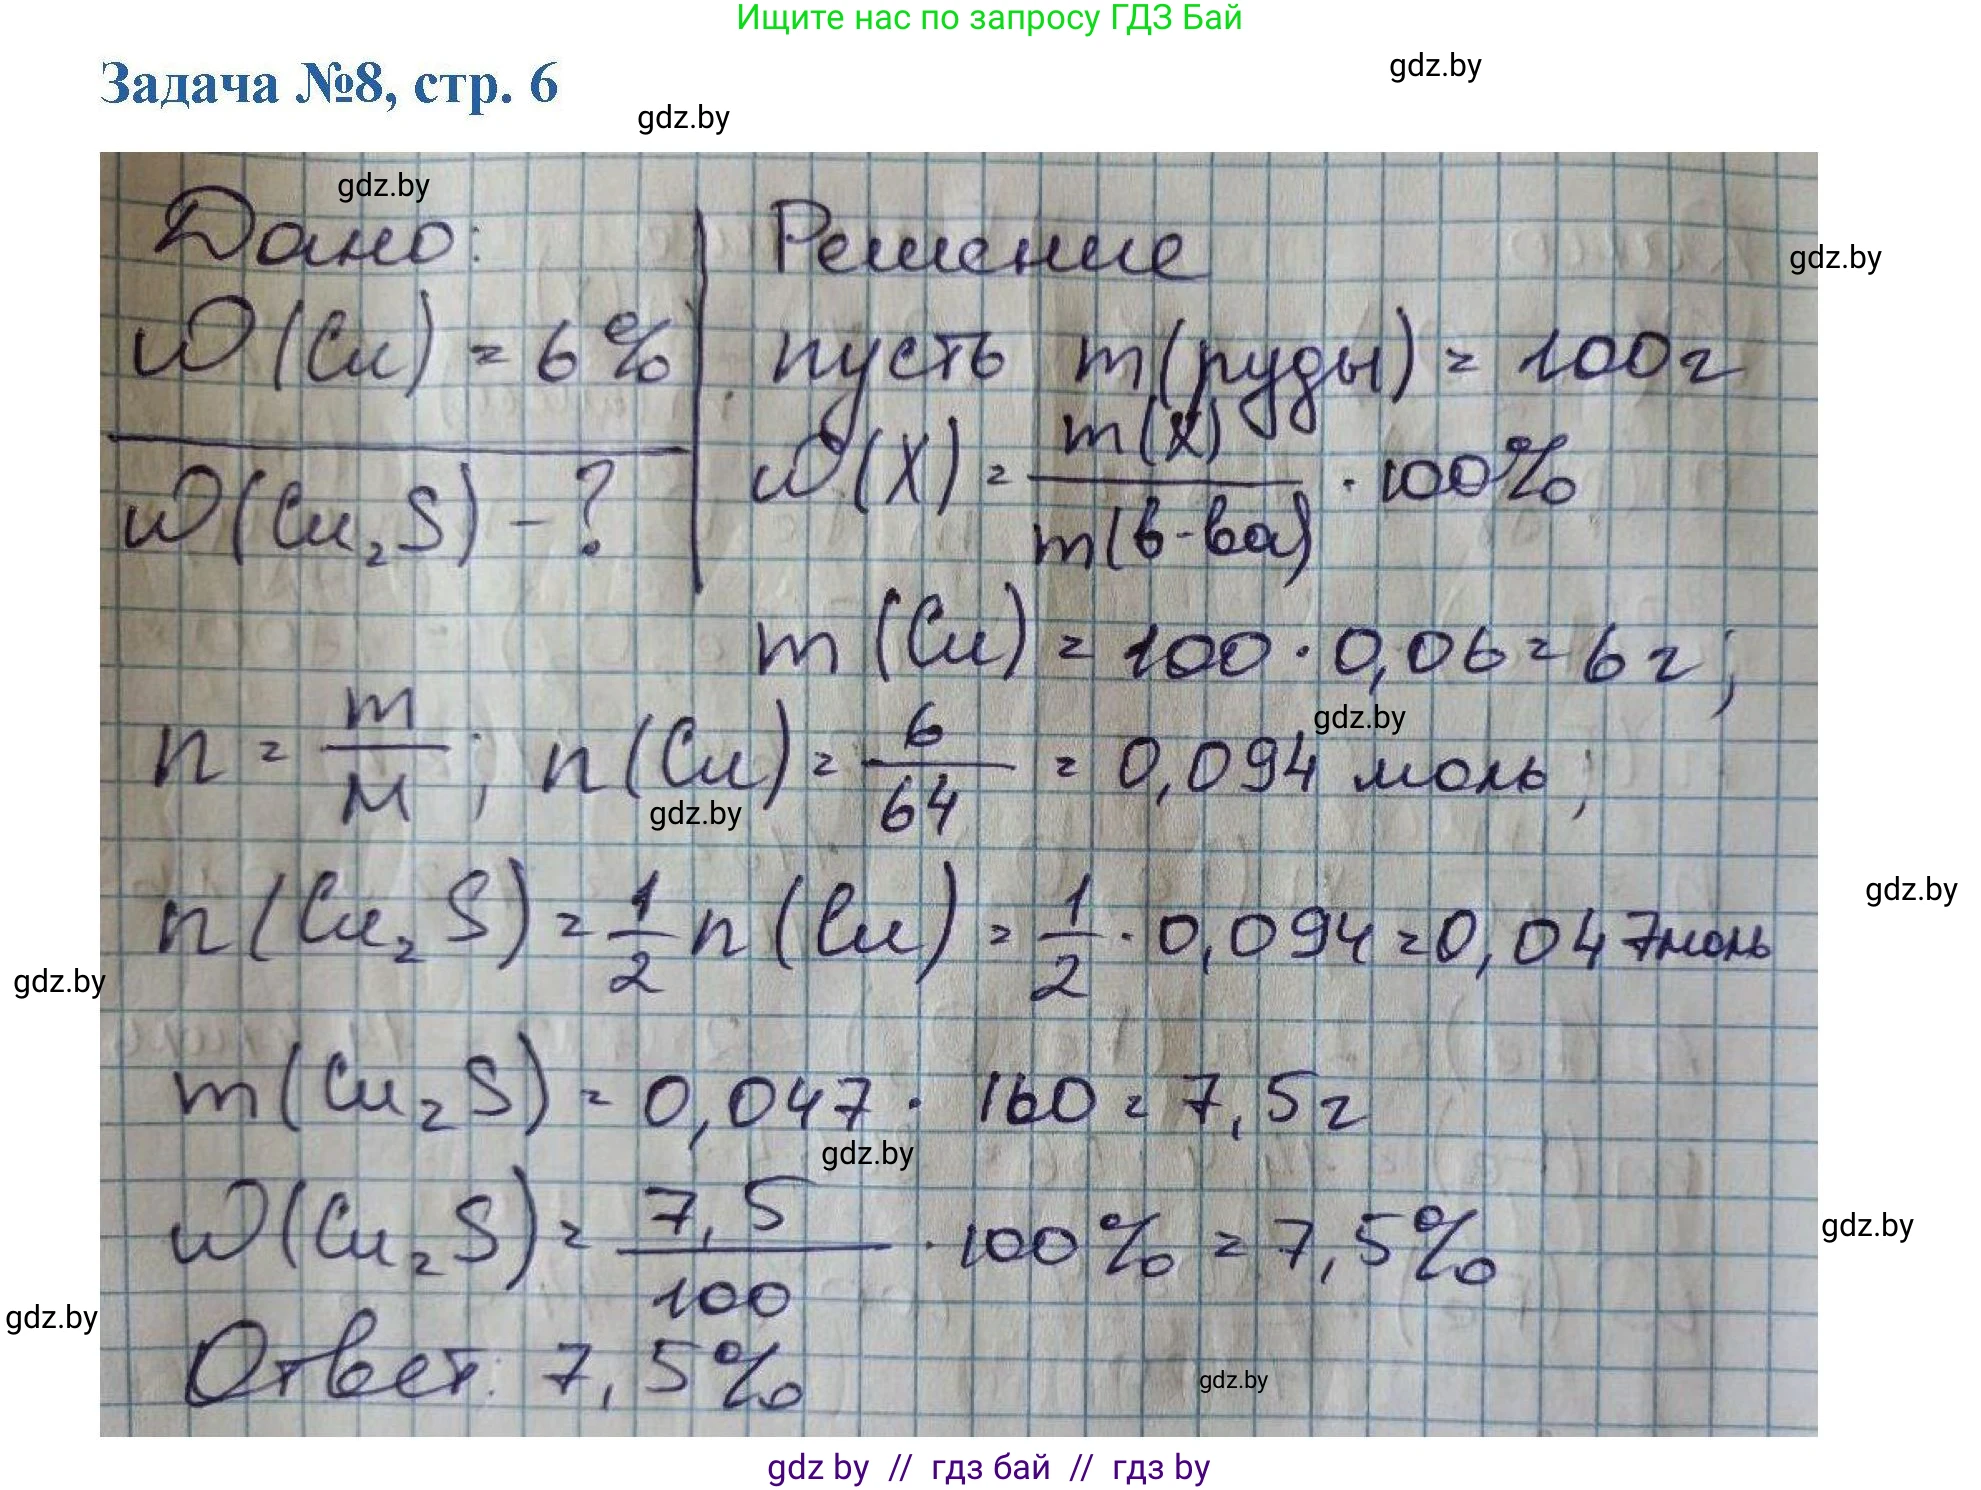 Ищите нас по запросу ГДЗ Бай
gdz.by
Задача №8, стр. 6
gdz.by
gdz.by
Дано: Решение
gdz.by
ω(Cu) = 6% пусть m(руды) = 100г
ω(Cu₂S) - ? ω(X) = m(X) / m(в-ва) · 100%
m(Cu) = 100 · 0,06 = 6г;
gdz.by
n = m / M; n(Cu) = 6 / 64 = 0,094 моль;
gdz.by
gdz.by
n(Cu₂S) = 1/2 n(Cu) = 1/2 · 0,094 = 0,047моль
gdz.by
m(Cu₂S) = 0,047 · 160 = 7,5г
gdz.by
ω(Cu₂S) = 7,5 / 100 · 100% = 7,5%
gdz.by
gdz.by
Ответ: 7,5%
gdz.by
gdz by // гдз бай // гдз by